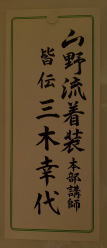 山野流着装本部講師
皆伝三木幸代